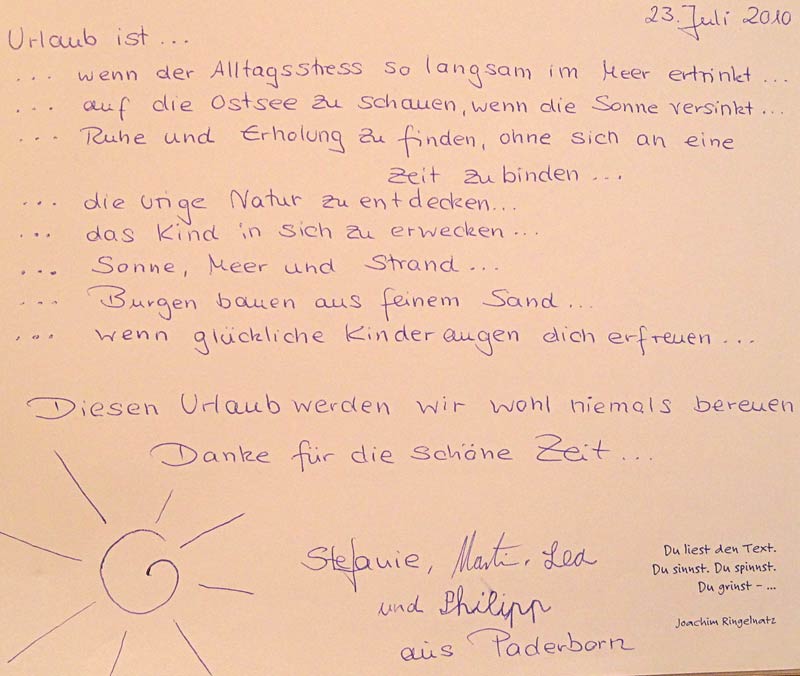 23. Juli 2010
Urlaub ist ...
... wenn der Alltagsstress so langsam im Meer ertrinkt ...
... auf die Ostsee zu schauen, wenn die Sonne versinkt ...
... Ruhe und Erholung zu finden, ohne sich an eine
Zeit zu binden ...
... die urige Natur zu entdecken...
... das Kind in sich zu erwecken ...
... Sonne, Meer und Strand ...
... Burgen bauen aus feinem Sand ...
... wenn glückliche Kinderaugen dich erfreuen ...
Diesen Urlaub werden wir wohl niemals bereuen
Danke für die schöne Zeit ...
Stefanie, Martin, Lea
und Philipp
aus Paderborn
Du liest den Text.
Du sinnst. Du spinnst.
Du grinst – ...
Joachim Ringelnatz